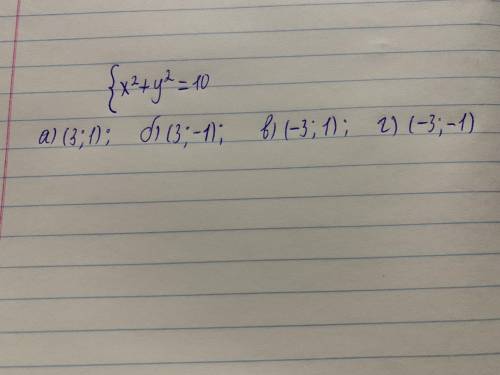 {x²+y²=10
а) (3; 1); б) (3; -1); в) (-3; 1); г) (-3; -1)